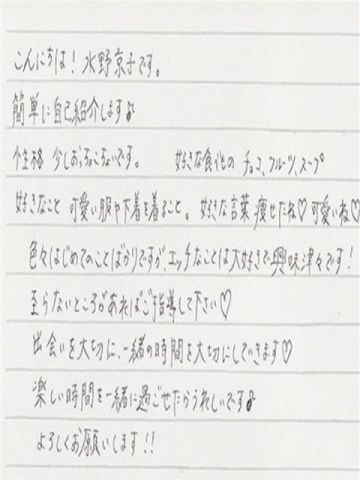 こんにちは！水野京子です。
簡単に自己紹介します♪
性格 少しおっちょこちょいです。 好きな食べもの チョコ、フルーツ、スープ
好きなこと 可愛い服や下着を着ること。 好きな言葉 痩せたね♡可愛いね♡
色々はじめてのことばかりですが、エッチなことは大好きで興味津々です！
至らないところがあればご指導して下さい♡
出会いを大切に、一緒の時間を大切にしていきます♡
楽しい時間を一緒に過ごせたらうれしいです♪
よろしくお願いします！！